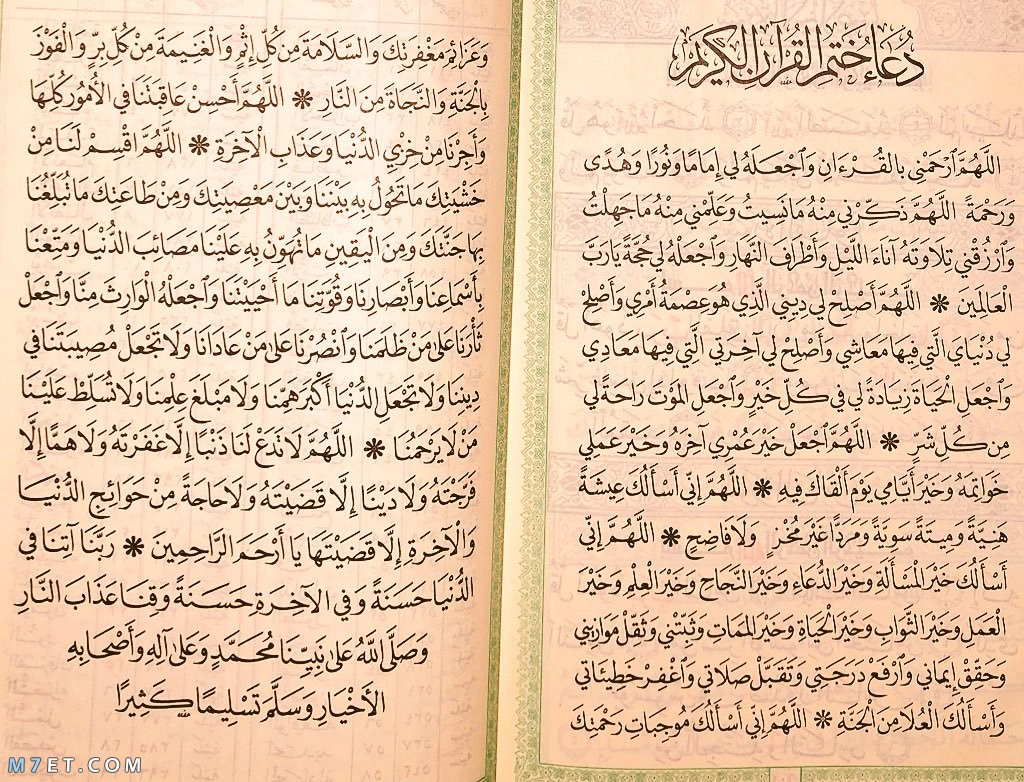 دُعَاءُ خَتْمِ القُرْآنِ الكَرِيمِ
اللَّهُمَّ ٱرْحَمْنِي بالقُرْءَانِ وَٱجْعَلهُ لِي إِمَامًا وَنُورًا وَهُدًى
وَرَحْمَةً اللَّهُمَّ ذَكِّرْنِي مِنْهُ مَانَسِيتُ وَعَلِّمْنِي مِنْهُ مَاجَهِلْتُ
وَٱرْزُقْنِي تِلَاوَتَهُ آنَاءَ اللَّيْلِ وَأَطْرَافَ النَّهَارِ وَٱجْعَلْهُ لِي حُجَّةً يَارَبَّ
العَالمِينَ * اللَّهُمَّ أَصْلِحْ لِي دِينِي الَّذِي هُوَ عِصْمَةُ أَمْرِي وَأَصْلِحْ
لِي دُنْيَايَ الَّتِي فِيهَا مَعَاشِي وَأَصْلِحْ لِي آخِرَتِي الَّتِي فِيهَا مَعَادِي
وَٱجْعَلِ الْحَيَاةَ زِيَادَةً لِي فِي كُلِّ خَيْرٍ وَٱجْعَلِ المَوْتَ رَاحَةً لِي
مِن كُلِّ شَرٍّ * اللَّهُمَّ ٱجْعَلْ خَيْرَ عُمْرِي آخِرَهُ وَخَيْرَ عَمَلِي
خَوَاتِمَهُ وَخَيْرَ أَيَّامِي يَوْمَ أَلْقَاكَ فِيهِ * اللَّهُمَّ إِنِّي أَسْأَلُكَ عِيشَةً
هَنِيَّةً وَمِيتَةً سَوِيَّةً وَمَرَدًّا غَيْرَ مُخْزٍ وَلَا فَاضِحٍ * اللَّهُمَّ إِنِّي
أَسْأَلُكَ خَيْرَ المَسْأَلَةِ وَخَيْرَ الدُّعَاءِ وَخَيْرَ النَّجَاحِ وَخَيْرَ العِلْمِ وَخَيْرَ
العَمَلِ وَخَيْرَ الثَّوَابِ وَخَيْرَ الْحَيَاةِ وَخَيْرَ المَمَاتِ وَثَبِّتْنِي وَثَقِّلْ مَوَازِينِي
وَحَقِّقْ إِيمَانِي وَٱرْفَعْ دَرَجَتِي وَتَقَبَّلْ صَلَاتِي وَٱغْفِرْ خَطِيئَاتِي
وَأَسْأَلُكَ الْعُلَا مِنَ الْجَنَّةِ * اللَّهُمَّ إِنِّي أَسْأَلُكَ مُوجِبَاتِ رَحْمَتِكَ
وَعَزَائِمَ مَغْفِرَتِكَ وَالسَّلَامَةَ مِن كُلِّ إِثْمٍ وَالْغَنِيمَةَ مِنْ كُلِّ بِرٍّ وَالْفَوْزَ
بِالْجَنَّةِ وَالنَّجَاةَ مِنَ النَّارِ * اللَّهُمَّ أَحْسِنْ عَاقِبَتَنَا فِي الأُمُورِ كُلِّهَا
وَأَجِرْنَا مِنْ خِزْيِ الدُّنْيَا وَعَذَابِ الْآخِرَةِ * اللَّهُمَّ اقْسِمْ لَنَا مِنْ
خَشْيَتِكَ مَا تَحُولُ بِهِ بَيْنَنَا وَبَيْنَ مَعْصِيَتِكَ وَمِنْ طَاعَتِكَ مَا تُبَلِّغُنَا
بِهَا جَنَّتَكَ وَمِنَ الْيَقِينِ مَا تُهَوِّنُ بِهِ عَلَيْنَا مَصَائِبَ الدُّنْيَا وَمَتِّعْنَا
بِأَسْمَاعِنَا وَأَبْصَارِنَا وَقُوَّتِنَا مَا أَحْيَيْتَنَا وَٱجْعَلْهُ الْوَارِثَ مِنَّا وَاجْعَلْ
ثَأْرَنَا عَلَى مَنْ ظَلَمَنَا وَٱنْصُرْنَا عَلَى مَنْ عَادَانَا وَلَا تَجْعَلْ مُصِيبَتَنَا فِي
دِينِنَا وَلَا تَجْعَلِ الدُّنْيَا أَكْبَرَ هَمِّنَا وَلَا مَبْلَغَ عِلْمِنَا وَلَا تُسَلِّطْ عَلَيْنَا
مَنْ لَا يَرْحَمُنَا * اللَّهُمَّ لَا تَدَعْ لَنَا ذَنْبًا إِلَّا غَفَرْتَهُ وَلَا هَمًّا إِلَّا
فَرَّجْتَهُ وَلَا دَيْنًا إِلَّا قَضَيْتَهُ وَلَا حَاجَةً مِنْ حَوَائِجِ الدُّنْيَا
وَالْآخِرَةِ إِلَّا قَضَيْتَهَا يَا أَرْحَمَ الرَّاحِمِينَ * رَبَّنَا آتِنَا فِي
الدُّنْيَا حَسَنَةً وَفِي الآخِرَةِ حَسَنَةً وَقِنَا عَذَابَ النَّارِ
وَصَلَّى اللَّهُ عَلَى نَبِيِّنَا مُحَمَّدٍ وَعَلَى آلِهِ وَأَصْحَابِهِ
الأَخْيَارِ وَسَلَّمَ تَسْلِيمًا كَثِيرًا
M7ET.COM